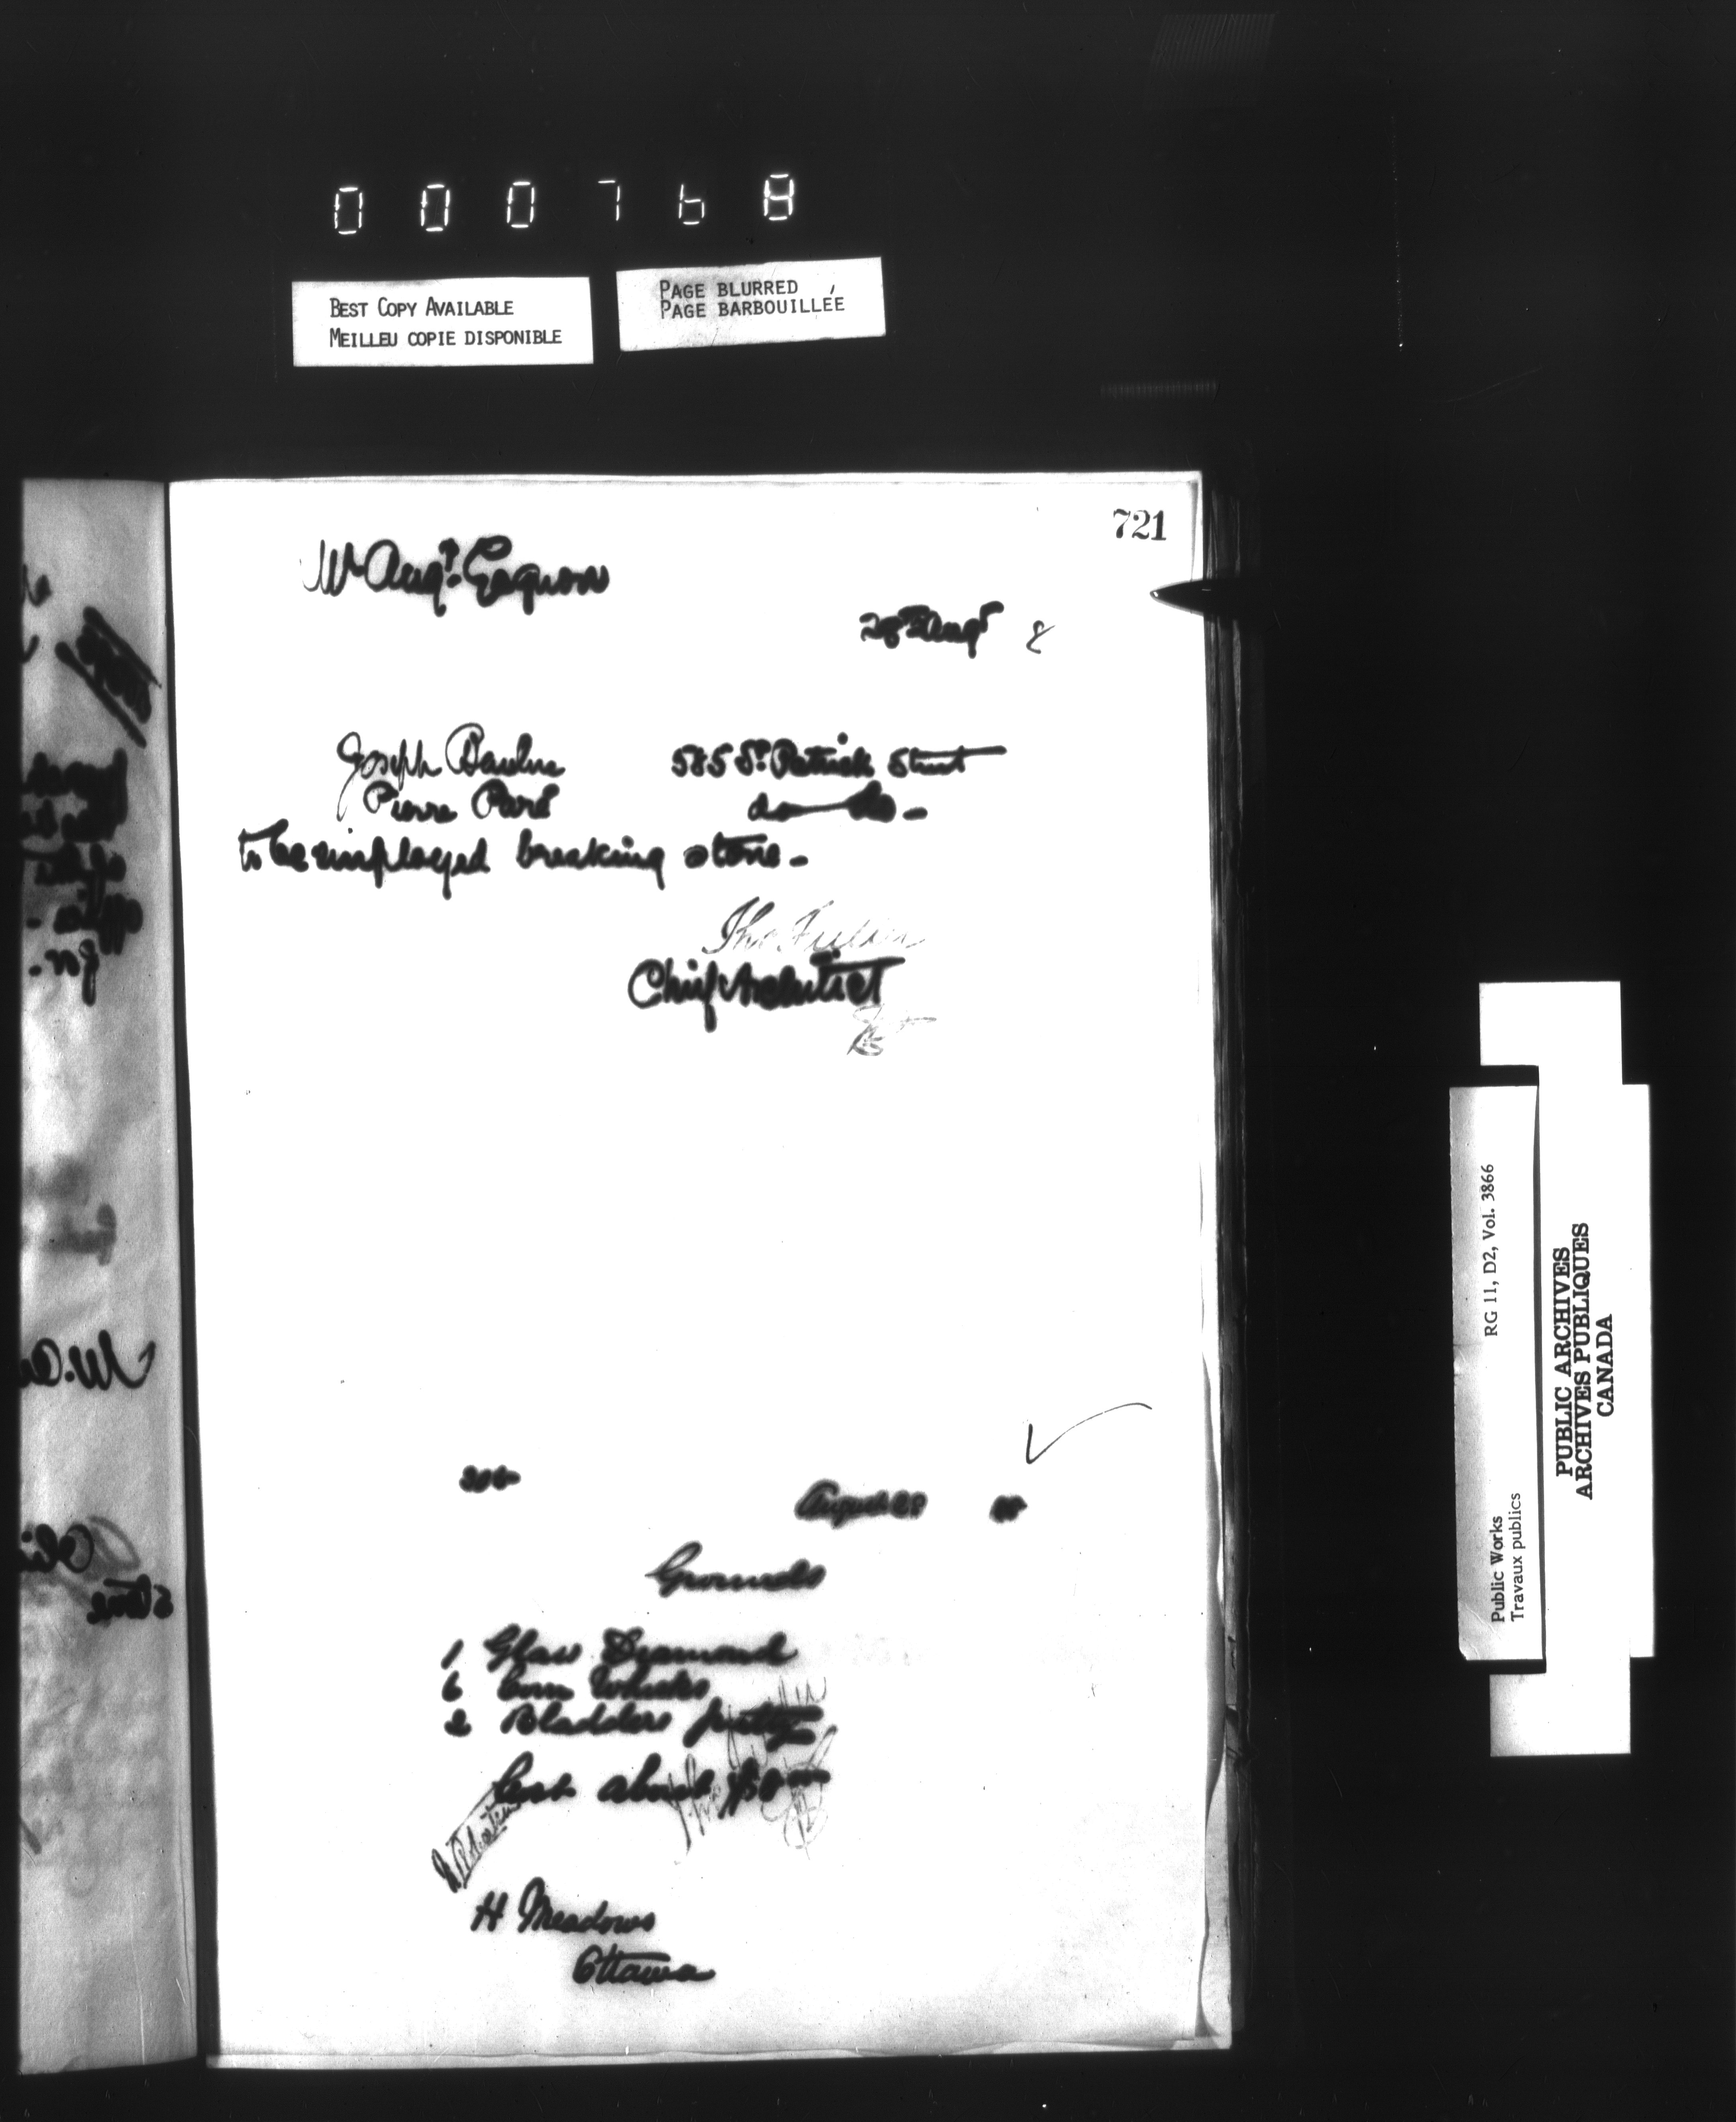 000768
BEST COPY AVAILABLE
MEILLEU COPIE DISPONIBLE
PAGE BLURRED
PAGE BARBOUILLÉE
721
Mr Augt. Gagnon
28th Augt 8
Joseph 585 St. Patrick Street
Pierre Paré do do -
to be employed breaking stone -
Thos Fuller
Chief Architect
August 28 88
Grounds
1 Glass Diamond
6 Corn Whisks
2 Bladders putty
Cost about
H Meadows
Ottawa
Public Works RG 11, D2, Vol. 3866
Travaux publics
PUBLIC ARCHIVES
ARCHIVES PUBLIQUES
CANADA